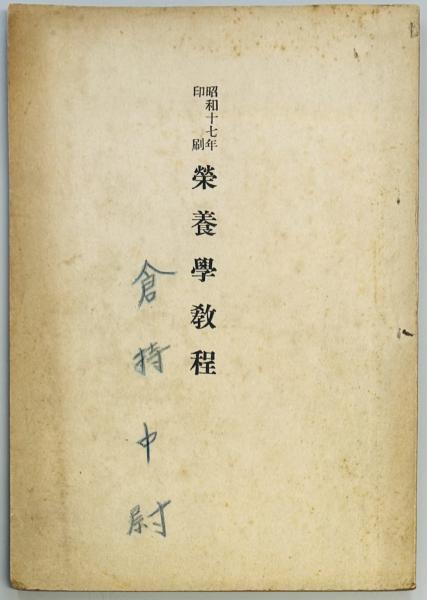 昭和十七年
印刷
榮養學教程
倉持中尉